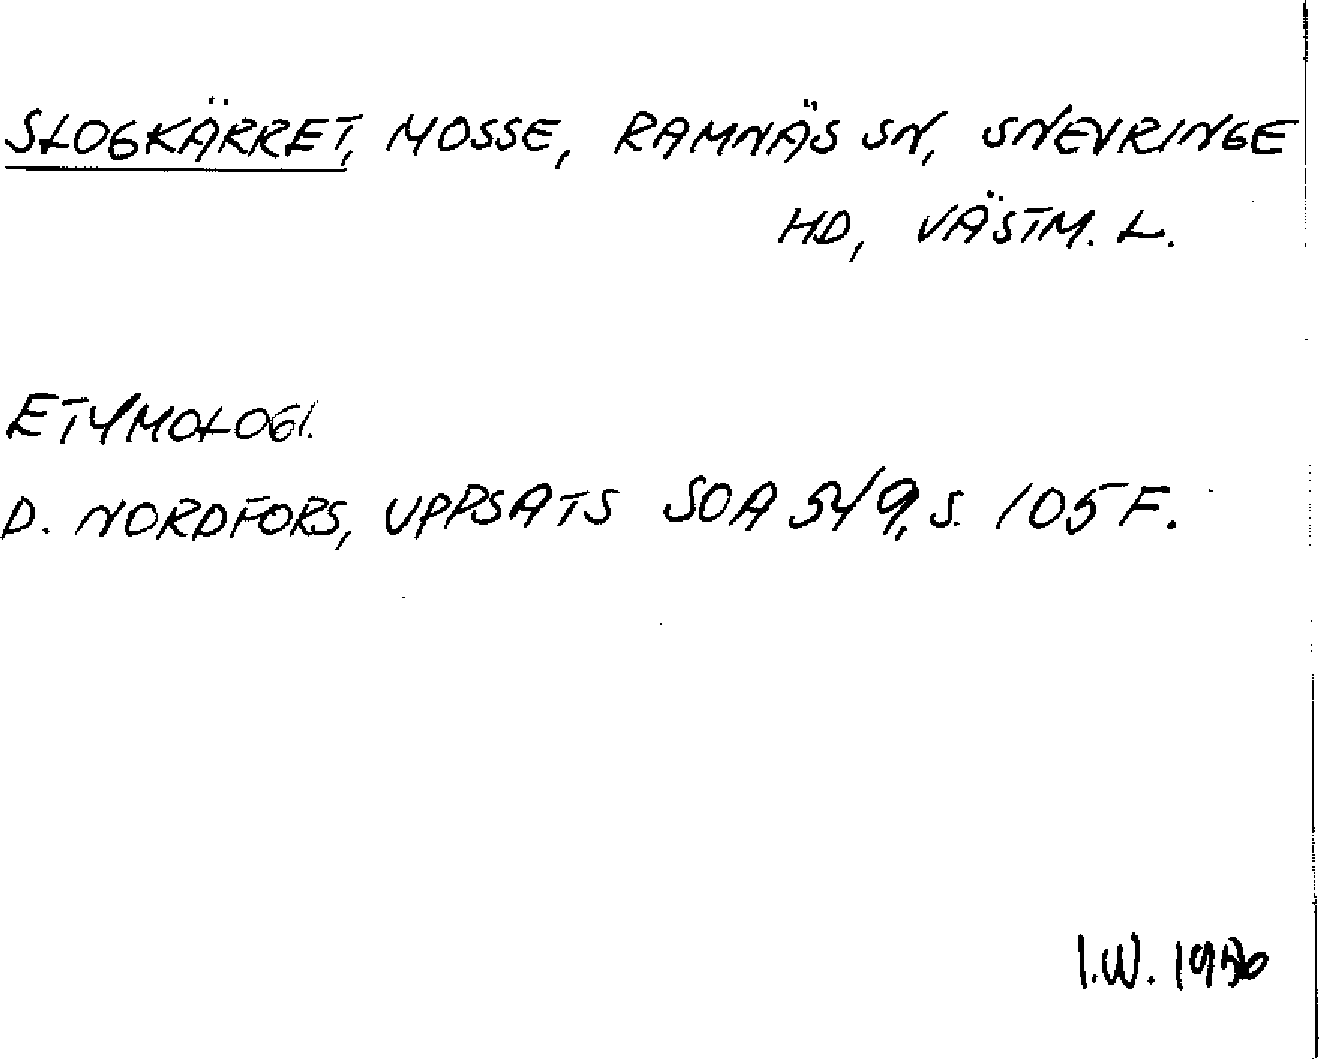 SLOGKÄRRET, MOSSE, RAMNÄS SN, SNEVRINGE
HD, VÄSTM. L.
ETYMOLOGI.
D. NORDFORS, UPPSATS SOA 549, S. 105 F.
I.W.